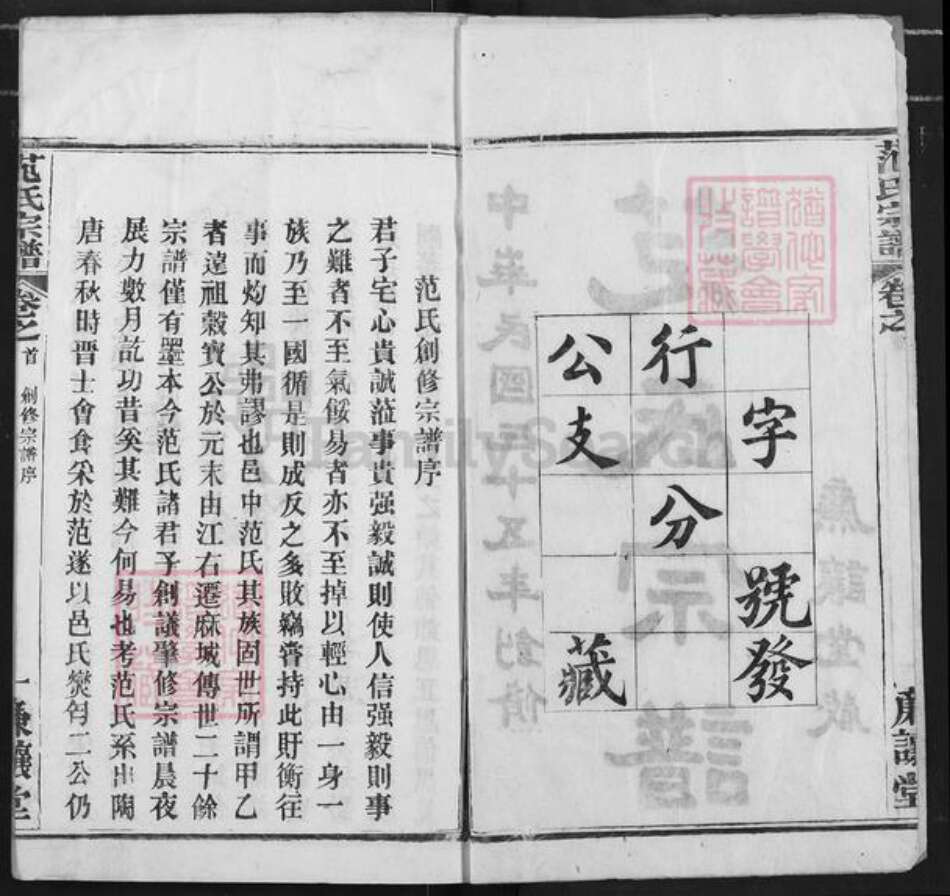 范氏宗譜
卷之
廉讓堂
字 號發
行 分
公支 藏
范氏創修宗譜序
君子宅心貴誠蒞事貴强毅誠則使人信强毅則事
之難者不至氣餒易者亦不至掉以輕心由一身一
族乃至一國循是則成反之多敗竊嘗持此盱衡往
事而灼知其弗謬也邑中范氏其族固世所謂甲乙
者遠祖穀寶公於元末由江右遷麻城傳世二十餘
宗譜僅有墨本今范氏諸君子創議肇修宗譜晨夜
展力數月訖功昔奚其難今何易也考范氏系出陶
唐春秋時晋士會食采於范遂以邑氏爕匄二公仍
范氏宗譜
卷之首
創修宗譜序
一
廉讓堂
中華民國三十五年創脩
范氏宗譜
廉讓堂藏
FamilySearch